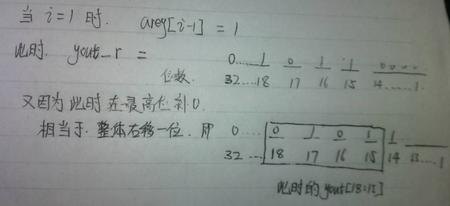 当 i=1 时. areg[i-1] = 1
此时. yout_r = 0......1 0 1 1 0000
位数. 32....18 17 16 15 14......1
又因为此时在最高位补0.
相当于.整体右移一位.即 0.... 0 1 0 1 1
32... 18 17 16 15 14 13....1
此时的yout[18:15]